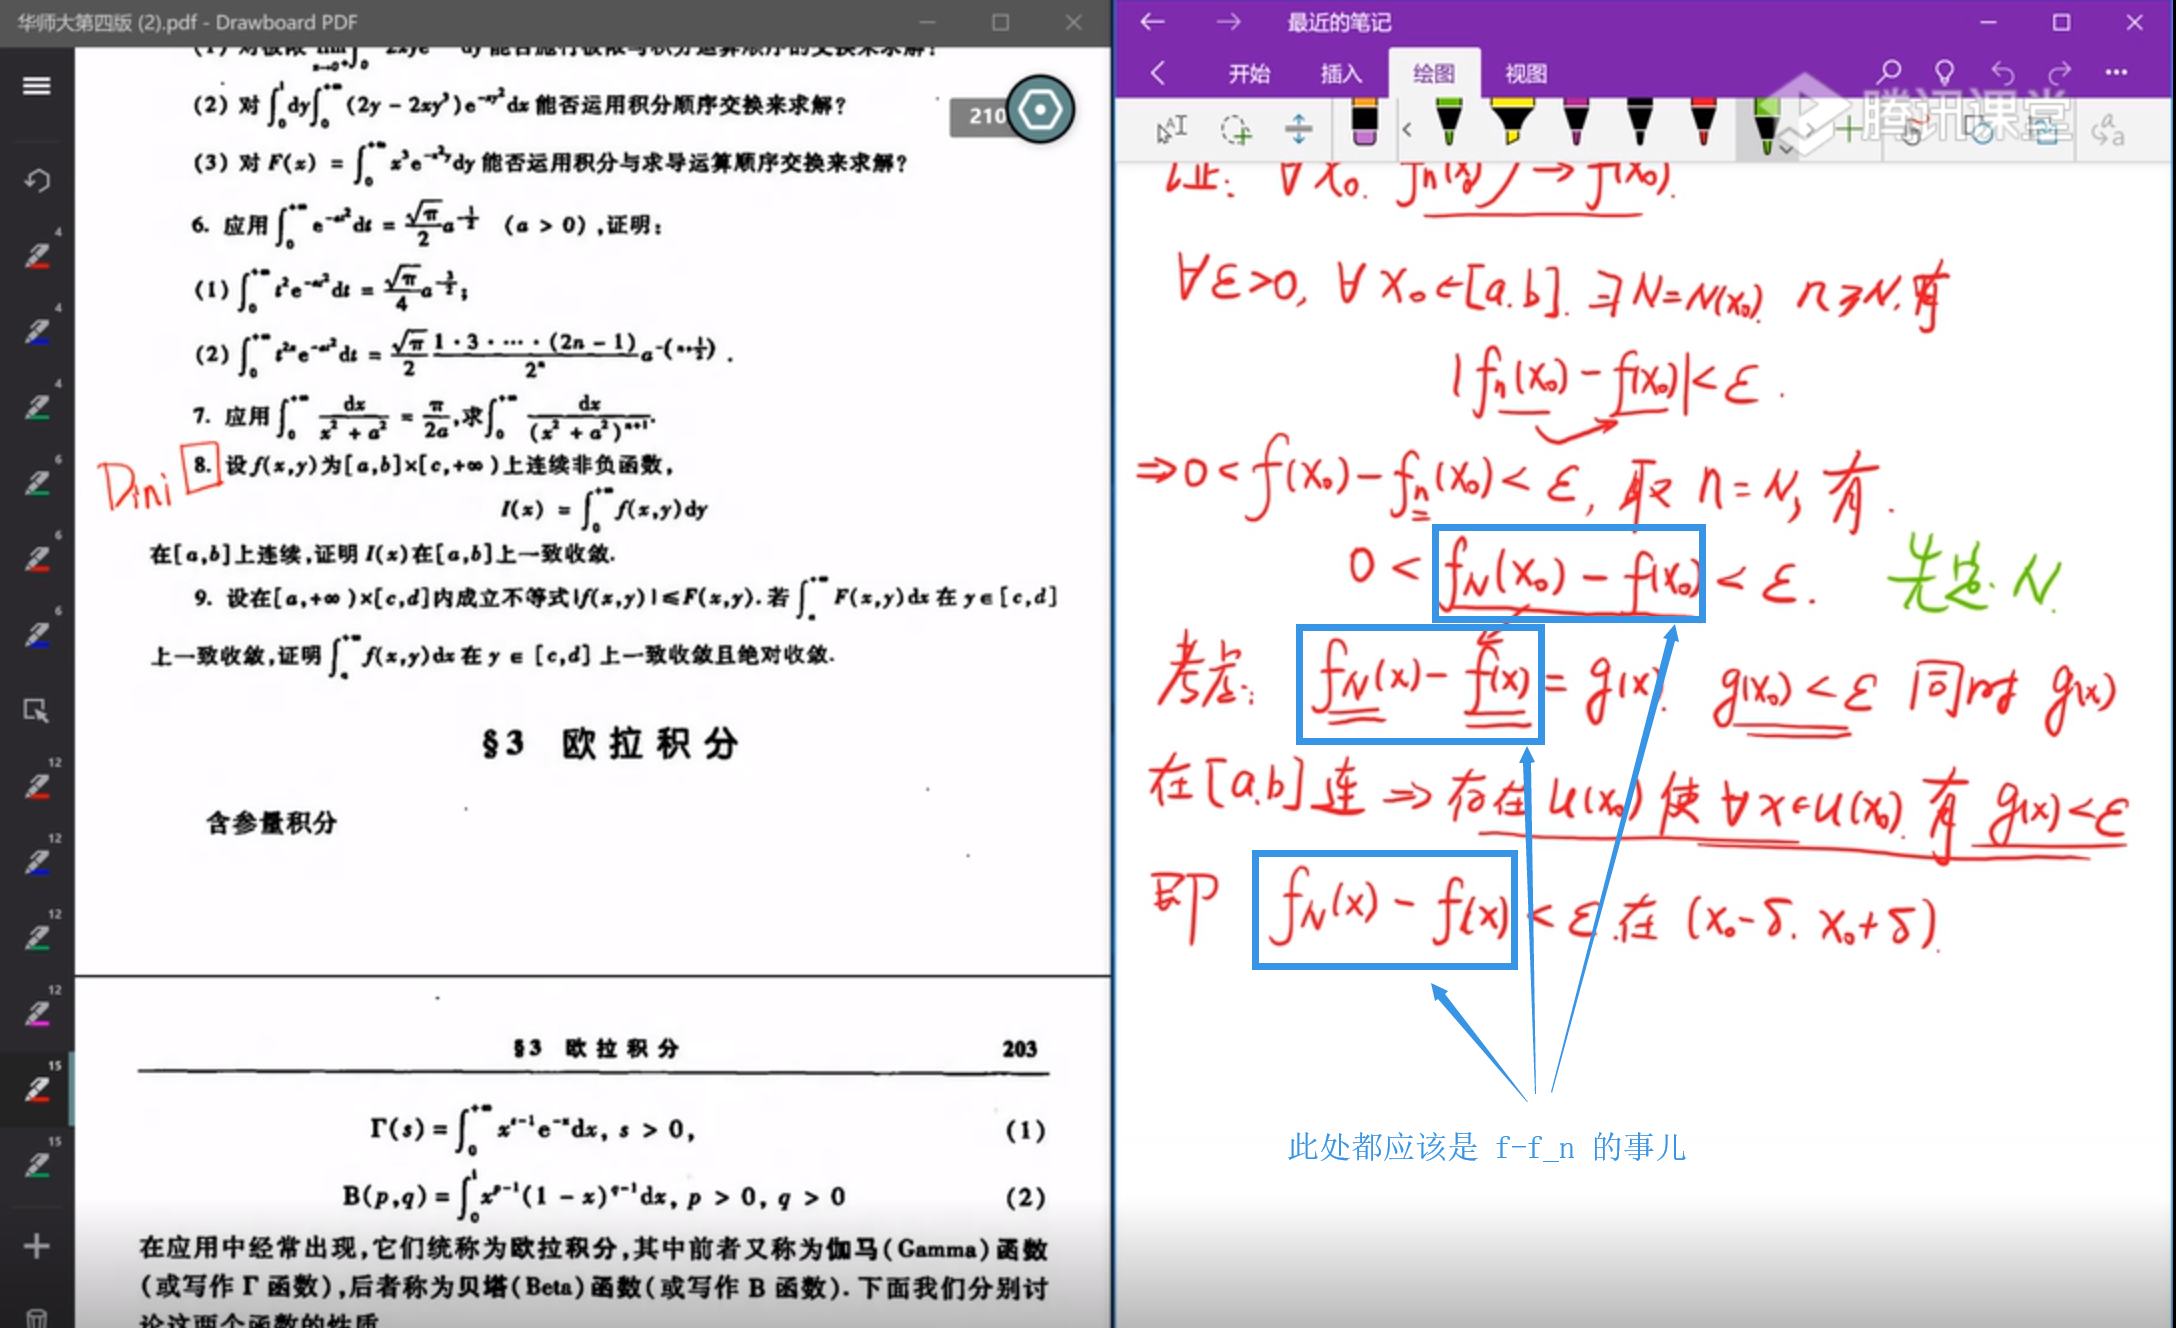 华师大第四版 (2).pdf - Drawboard PDF
(2) 对∫₀¹dy∫₀⁺∞(2y - 2xy³)e^{-xy²}dx 能否运用积分顺序交换来求解?
210
(3) 对 F(x) = ∫₀⁺∞ x³e^{-x²y}dy 能否运用积分与求导运算顺序交换来求解?
6. 应用∫₀⁺∞ e^{-at²}dt = (√π/2)a^{-1/2} (a > 0),证明:
(1) ∫₀⁺∞ t²e^{-at²}dt = (√π/4)a^{-3/2};
(2) ∫₀⁺∞ t^{2n}e^{-at²}dt = (√π/2) (1·3·⋯·(2n-1))/2ⁿ a^{-(n+1/2)}.
7. 应用∫₀⁺∞ dx/(x² + a²) = π/2a,求∫₀⁺∞ dx/(x² + a²)^{n+1}.
Dini 8. 设 f(x,y)为[a,b]×[c,+∞)上连续非负函数,
I(x) = ∫₀⁺∞ f(x,y)dy
在[a,b]上连续,证明 I(x)在[a,b]上一致收敛.
9. 设在[a,+∞)×[c,d]内成立不等式|f(x,y)|≤F(x,y).若∫ₐ⁺∞ F(x,y)dx 在 y∈[c,d]
上一致收敛,证明∫ₐ⁺∞ f(x,y)dx 在 y ∈ [c,d] 上一致收敛且绝对收敛.
§3 欧拉积分
含参量积分
§3 欧拉积分 203
Γ(s) = ∫₀⁺∞ x^{s-1}e^{-x}dx, s > 0, (1)
B(p,q) = ∫₀¹ x^{p-1}(1 - x)^{q-1}dx, p > 0, q > 0 (2)
在应用中经常出现,它们统称为欧拉积分,其中前者又称为伽马(Gamma)函数
(或写作 Γ 函数),后者称为贝塔(Beta)函数(或写作 B 函数).下面我们分别讨
论这两个函数的性质
4
4
4
6
6
6
12
12
12
12
15
15
最近的笔记
开始 插入 绘图 视图
腾讯课堂
证: ∀x₀. fₙ(x₀) → f(x₀).
∀ε>0, ∀x₀∈[a.b]. ∃N=N(x₀). n≥N. 有
|fₙ(x₀) - f(x₀)| < ε.
⇒ 0 < f(x₀) - fₙ(x₀) < ε, 取 n = N, 有.
0 < f_N(x₀) - f(x₀) < ε. 先定 N.
考虑: f_N(x) - f(x) = g(x). g(x₀) < ε 同时 g(x)
在[a.b]连 ⇒ 存在 U(x₀) 使 ∀x∈U(x₀). 有 g(x)<ε
即 f_N(x) - f(x) < ε. 在 (x₀-δ. x₀+δ).
此处都应该是 f-f_n 的事儿